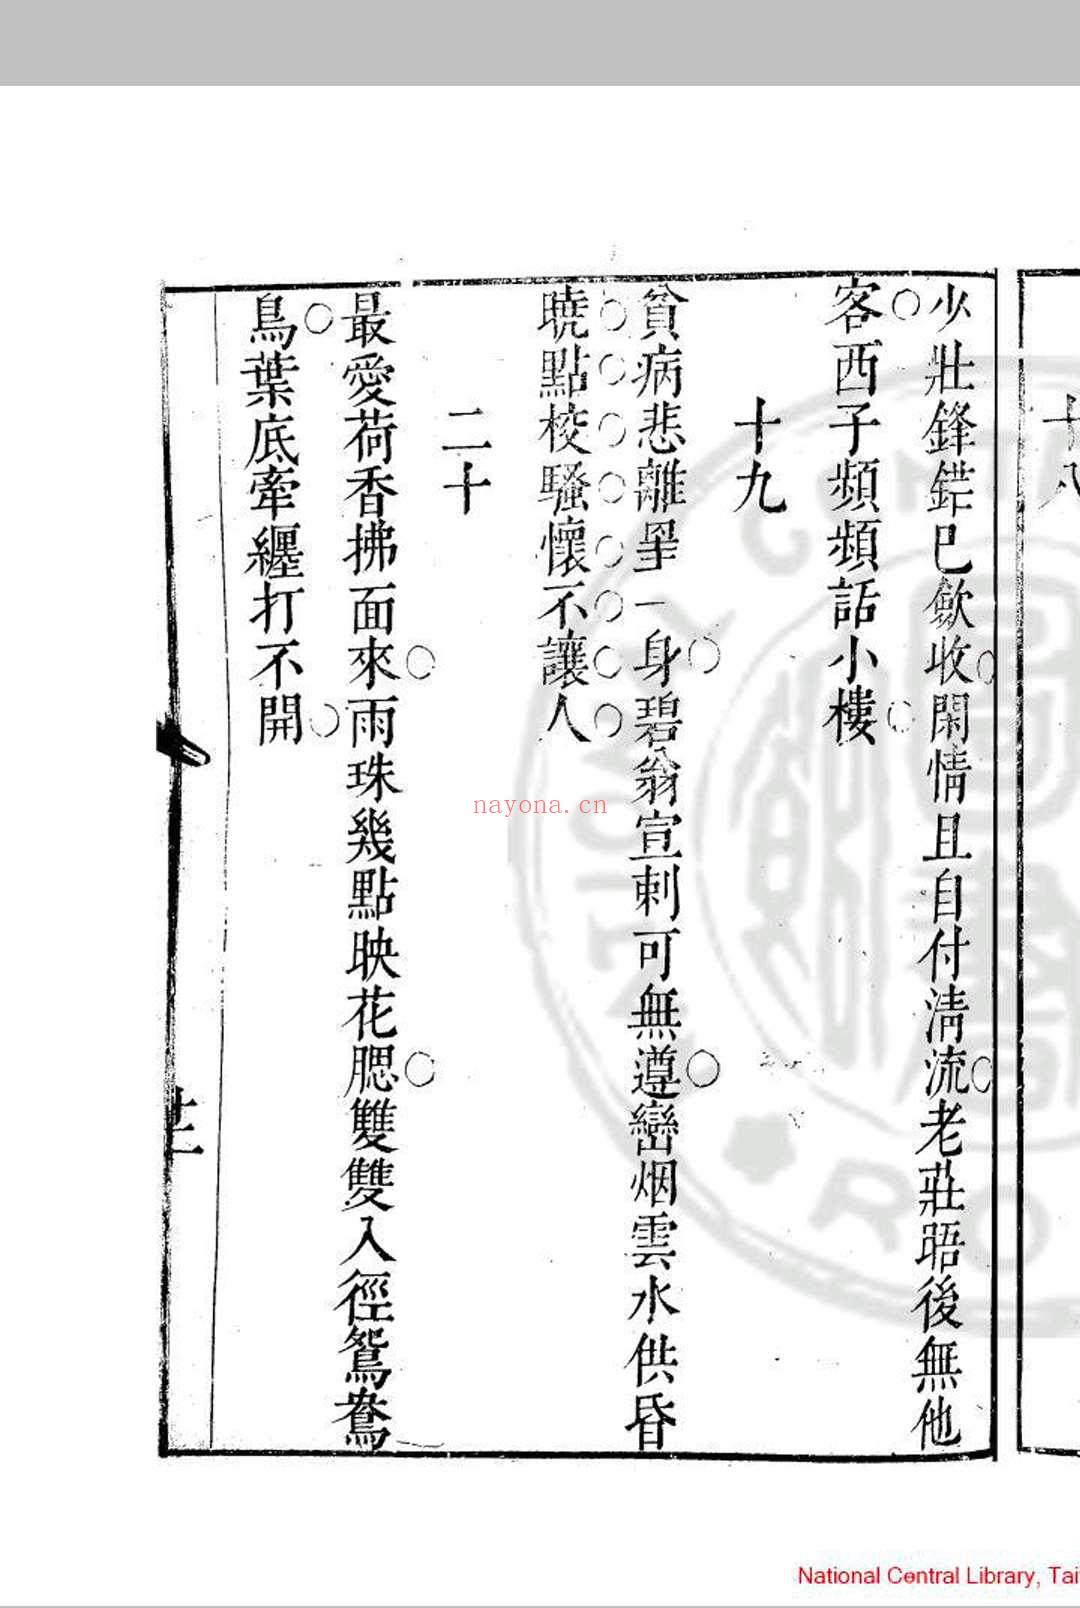 十八
少壯鋒錯已歛收閑情且自付清流老莊晤後無他
客西子頻頻話小樓
十九
貧病悲離一身碧翁宣刺可無遵巒烟雲水供昏
曉點校騷懷不讓人
二十
最愛荷香拂面來雨珠幾點映花腮雙雙入徑鴛鴦
鳥葉底牽纒打不開
nayona.cn
National Central Library, Tai